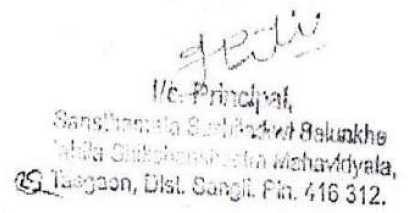 I/c. Principal,
Sansthamata Sushiladevi Salunkhe
Mahila Shikshanshastra Mahavidyala,
Tasgaon, Dist. Sangli. Pin. 416 312.